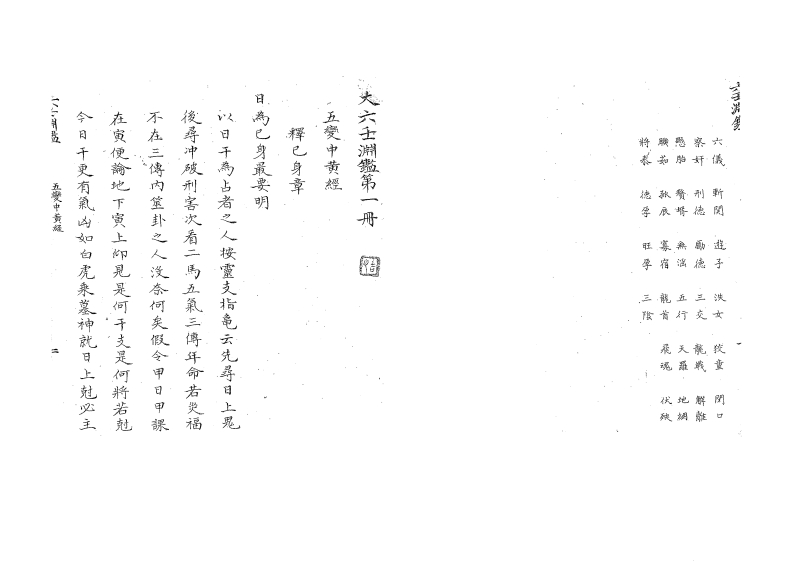 六壬淵鑑
六儀 斬關 遊子 泆女 狡童 閉口
察奸 刑德 勵德 三交 龍戰 解離
懸胎 贅壻 無淫 五行 天羅 地網
聯茹 寡宿 龍首 飛魂 伏殃
將泰 德孕 旺孕 三陰
大六壬淵鑑第一冊
五變中黃經
釋己身章
日為己身最要明
以日干為占者之人按靈支指龜云先尋日上晃
後尋冲破刑害次看二馬五氣三傳年命若災福
不在三傳内筮卦之人沒奈何矣假令甲日甲課
在寅便論地下寅上仰見是何干支是何將若尅
今日干更有氣凶如白虎乘墓神就日上尅必主
六壬淵鑑
五變中黃經
二